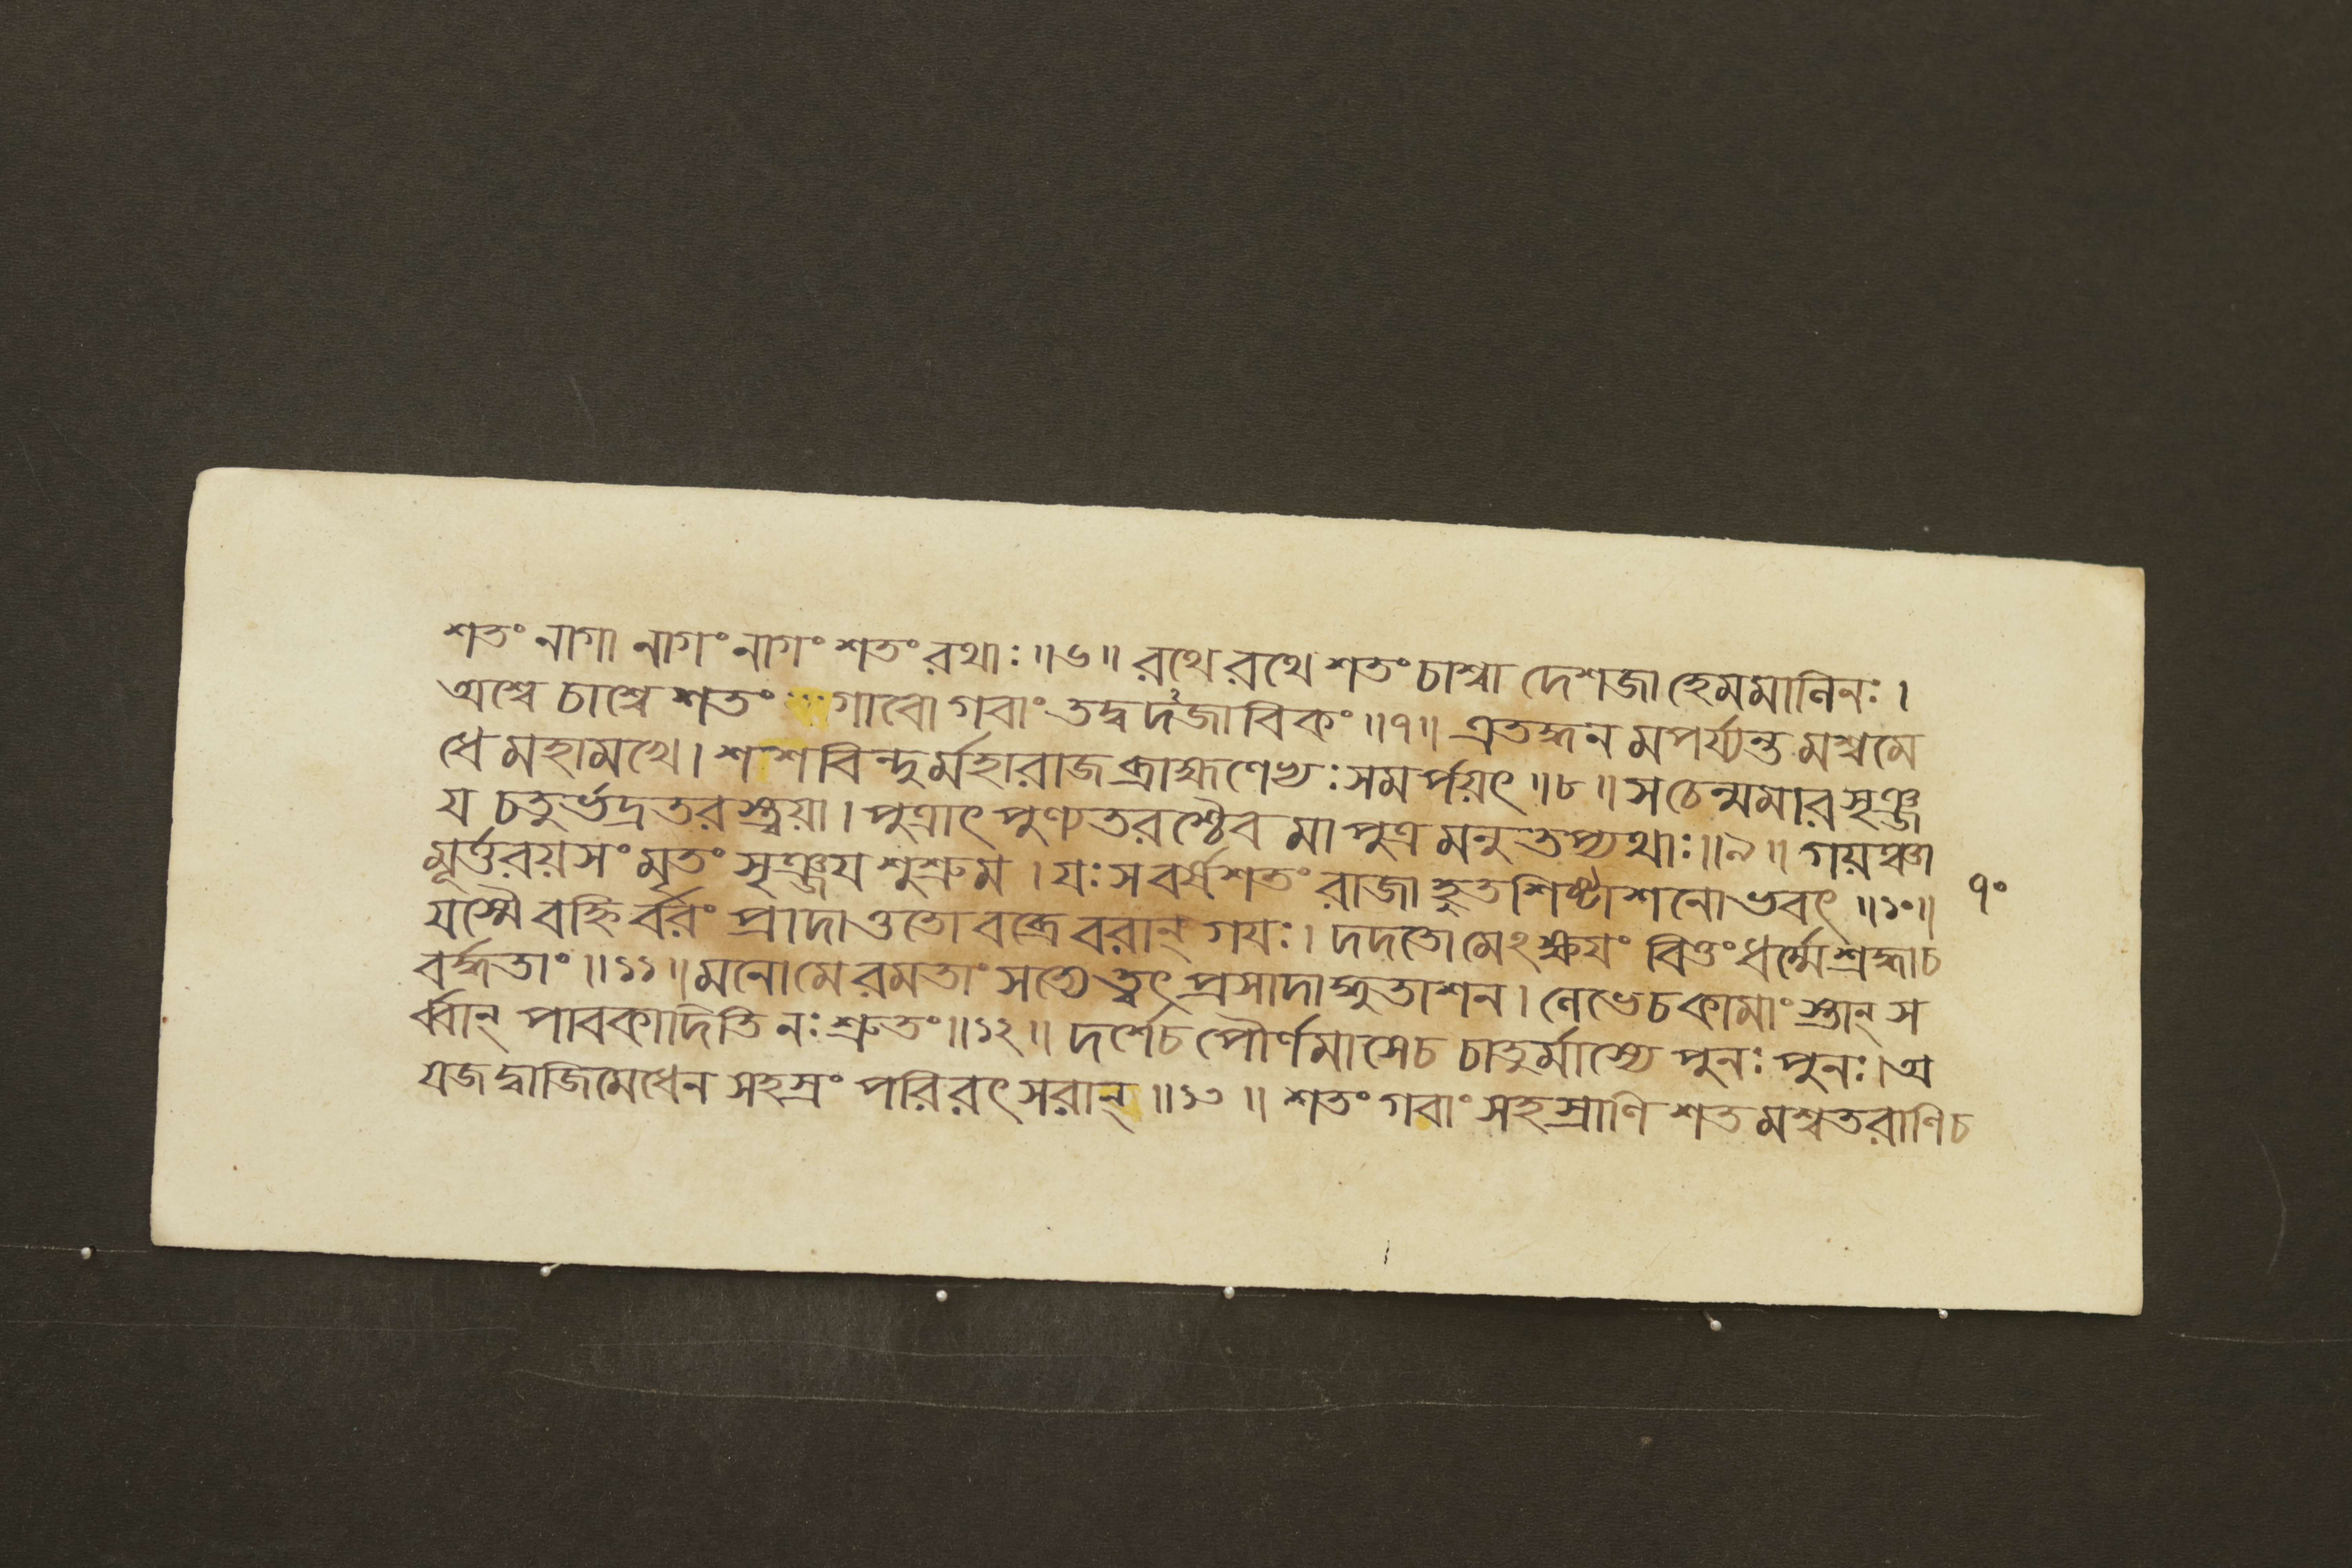 শতং নাগা নাগং নাগং শতং রথাঃ ॥৬॥ রথে রথে শতং চাশ্বা দেশজা হেমমানিনঃ ।
অশ্বে চাশ্বে শতং গাবো গবাং তদ্বদজাবিকং ॥৭॥ এতদ্ধনমপর্য্যন্তমশ্বমে
ধে মহামখে । শশবিন্দুর্মহারাজ ব্রাহ্মণেভ্যঃ সমর্পয়ৎ ॥৮॥ স চেন্মমার সৃঞ্জ
য চতুর্ভদ্রতরস্ত্বয়া । পুত্রাৎ পুণ্যতরশ্চৈব মা পুত্রমনুতপ্যথাঃ ॥৯॥ গয়ঞ্চা
মূর্ত্তরয়সং মৃতং সৃঞ্জয শুশ্রুম । যঃ স বর্ষশতং রাজা হুতশিষ্টাশনোভবৎ ॥১০॥
৭০
যস্মৈ বহ্নির্বরং প্রাদাত্ততো বব্রে বরান্ গযঃ । দদতো মেঽক্ষযং বিত্তং ধর্ম্মে শ্রদ্ধা চ
বর্দ্ধতাং ॥১১॥ মনো মে রমতাং সত্যে ত্বৎপ্রসাদাদ্ধুতাশন । লেভে চ কামাংস্তান্ স
র্ব্বান্ পাবকাদিতি নঃ শ্রুতং ॥১২॥ দর্শে চ পৌর্ণমাসে চ চাতুর্মাস্যে পুনঃ পুনঃ । অ
যজদ্বাজিমেধেন সহস্রং পরিবৎসরান্ ॥১৩॥ শতং গবাং সহস্রাণি শতমশ্বতরাণি চ